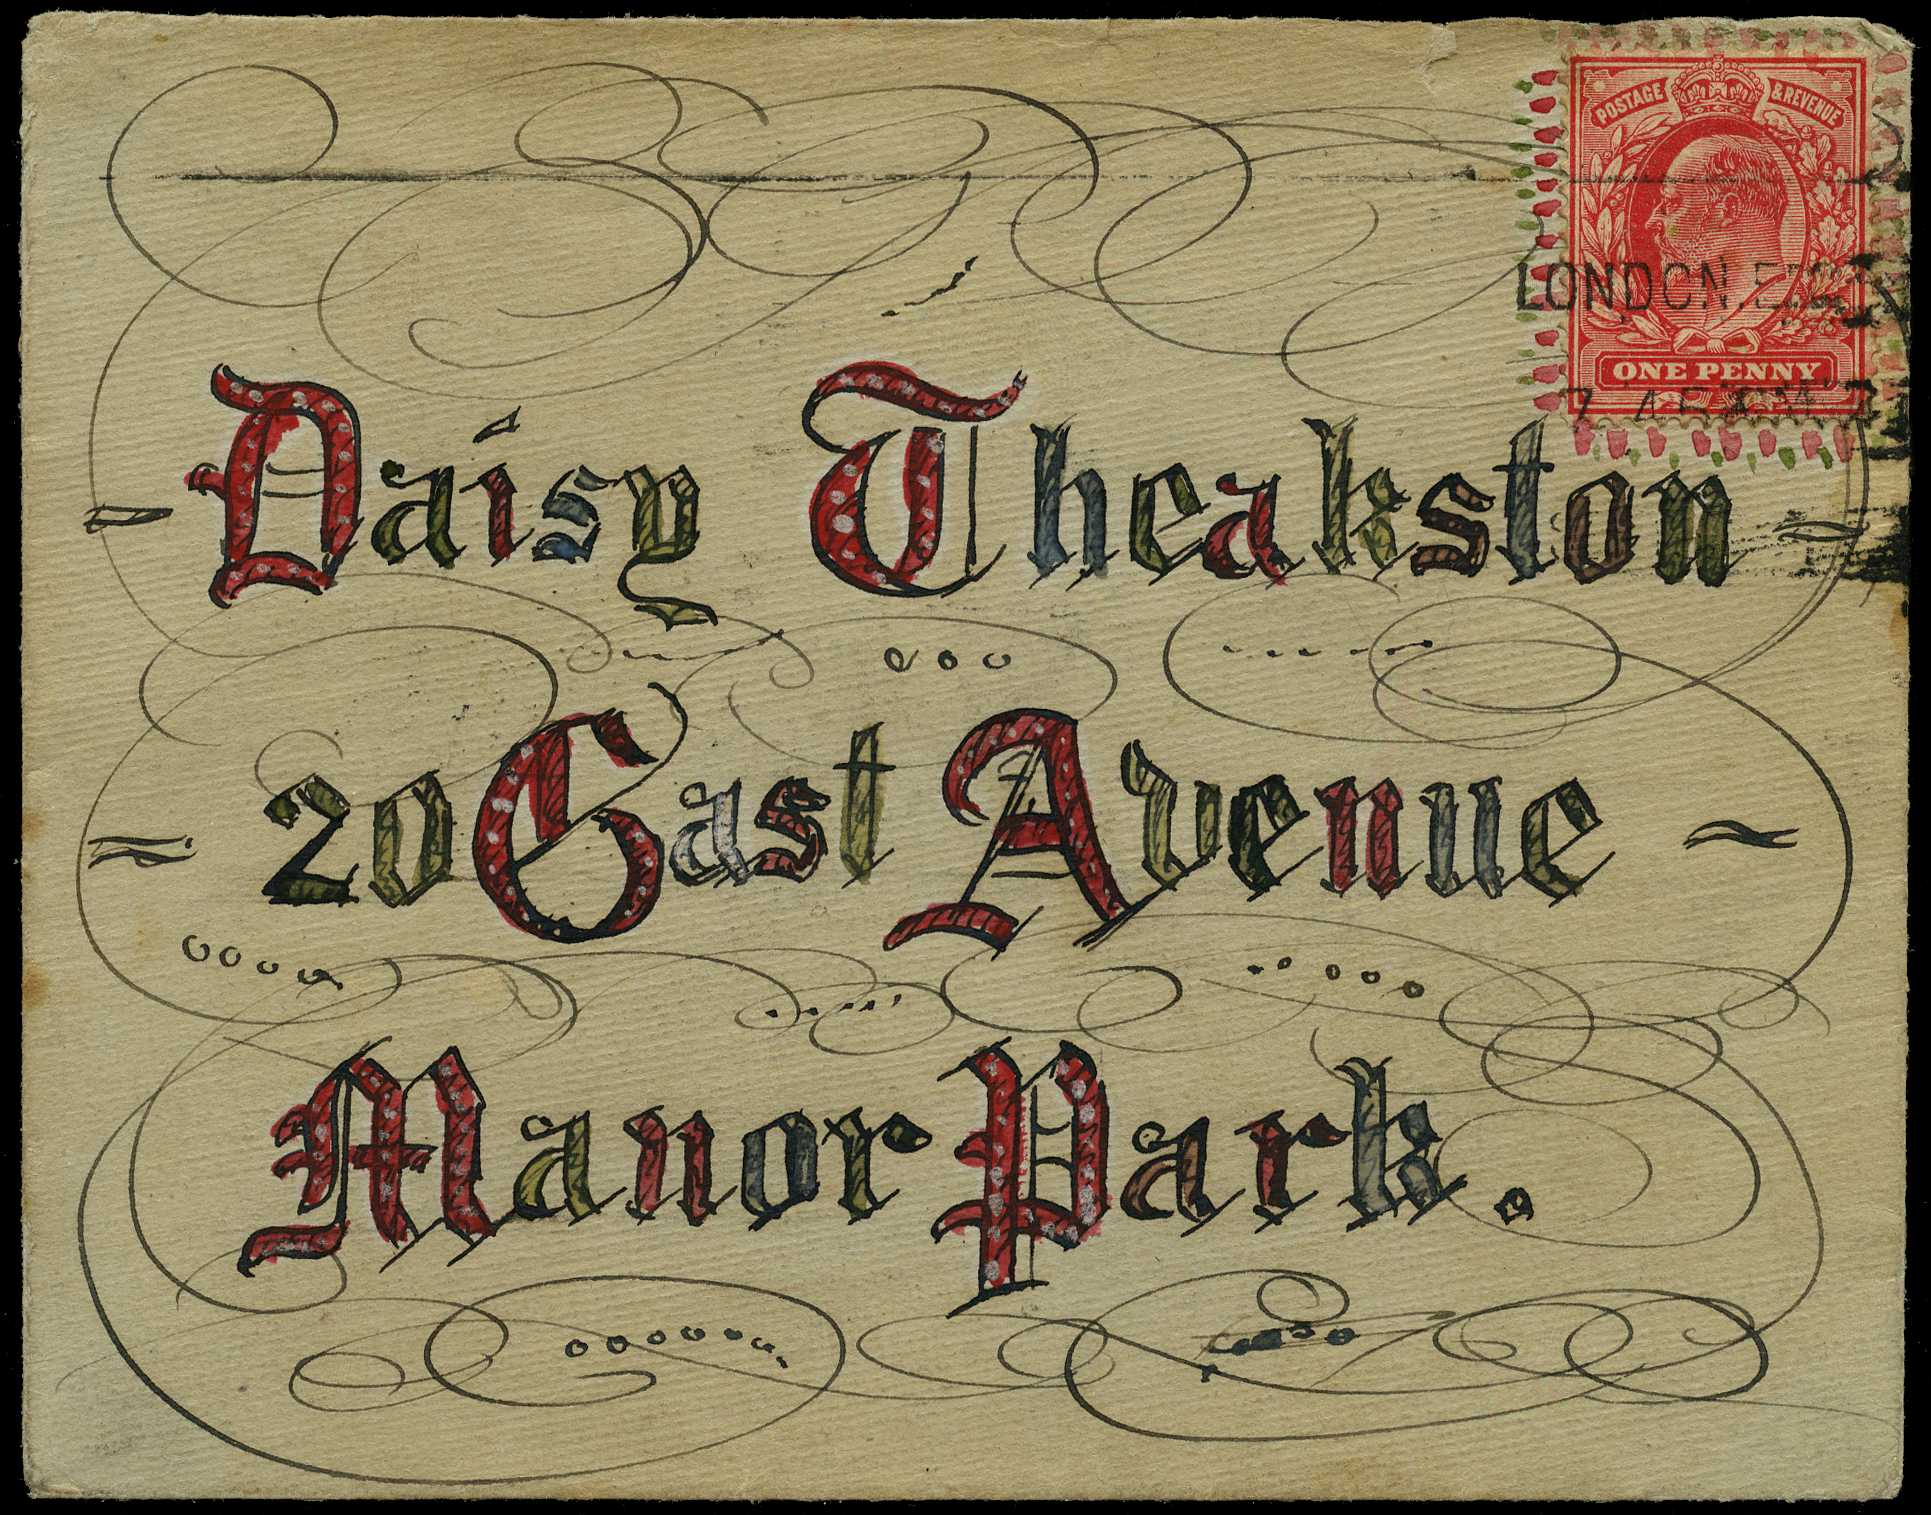 POSTAGE & REVENUE
LONDON. E.C.
ONE PENNY
Daisy Theakston
20 East Avenue
Manor Park.